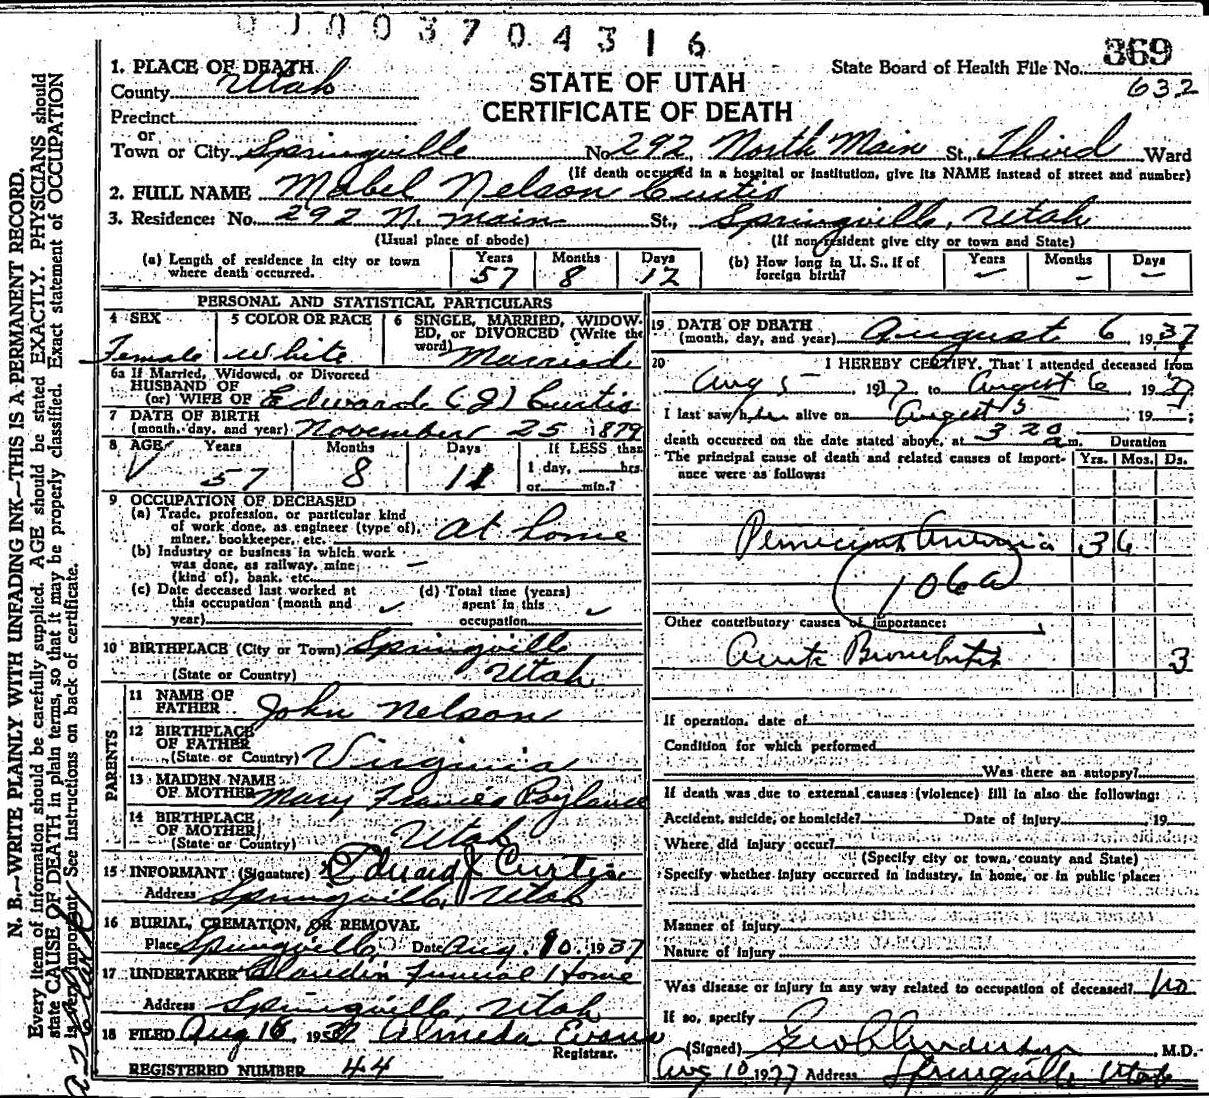 0 0 0 0 3 7 0 4 3 1 6
1. PLACE OF DEATH
County Utah
Precinct
or
Town or City Springville
STATE OF UTAH
CERTIFICATE OF DEATH
State Board of Health File No. 369
632
No. 292, North Main St., Third Ward
(If death occurred in a hospital or institution, give its NAME instead of street and number)
2. FULL NAME Mabel Nelson Curtis
3. Residence: No. 292 N. Main St., Springville, Utah
(Usual place of abode) (If non-resident give city or town and State)
(a) Length of residence in city or town where death occurred. Years 57 Months 8 Days 12
(b) How long in U. S., if of foreign birth? Years — Months — Days —
PERSONAL AND STATISTICAL PARTICULARS
4 SEX Female
5 COLOR OR RACE White
6 SINGLE, MARRIED, WIDOWED, or DIVORCED (Write the word) Married
6a If Married, Widowed, or Divorced
HUSBAND OF
(or) WIFE OF Edward (J) Curtis
7 DATE OF BIRTH
(month, day, and year) November 25 1879
8 AGE Years 57 Months 8 Days 11
If LESS than
1 day, hrs.
or min.?
9 OCCUPATION OF DECEASED
(a) Trade, profession, or particular kind
of work done, as engineer (type of),
miner, bookkeeper, etc. At home
(b) Industry or business in which work
was done, as railway, mine
(kind of), bank, etc. —
(c) Date deceased last worked at
this occupation (month and
year)
(d) Total time (years)
spent in this
occupation
10 BIRTHPLACE (City or Town) Springville
(State or Country) Utah
PARENTS
11 NAME OF
FATHER John Nelson
12 BIRTHPLACE
OF FATHER
(State or Country) Virginia
13 MAIDEN NAME
OF MOTHER Mary Frances Boylance
14 BIRTHPLACE
OF MOTHER
(State or Country) Utah
15 INFORMANT (Signature) Edward J Curtis
Address Springville, Utah
16 BURIAL, CREMATION, OR REMOVAL
Place Springville, Date Aug. 10, 1937
17 UNDERTAKER Claudin Funeral Home
Address Springville, Utah
18 FILED Aug 16, 1937 Almeda Evans
Registrar.
REGISTERED NUMBER 44
19 DATE OF DEATH
(month, day, and year) August 6, 1937
20 I HEREBY CERTIFY, That I attended deceased from
Aug 5 1937 to August 6 1937
I last saw her alive on August 5 19 ;
death occurred on the date stated above, at 3 20 a m. Duration
The principal cause of death and related causes of importance were as follows: Yrs. Mos. Ds.
Pernicious Anemia 3 6
106a
Other contributory causes of importance:
Acute Bronchitis 3
If operation, date of
Condition for which performed
Was there an autopsy?
If death was due to external causes (violence) fill in also the following:
Accident, suicide, or homicide? Date of injury 19
Where did injury occur?
(Specify city or town, county and State)
Specify whether injury occurred in industry, in home, or in public place:
Manner of injury
Nature of injury
Was disease or injury in any way related to occupation of deceased? No
If so, specify
(Signed) Geo Anderson, M.D.
Aug 10, 1937 Address Springville Utah
N. B.—WRITE PLAINLY WITH UNFADING INK—THIS IS A PERMANENT RECORD.
Every item of information should be carefully supplied. AGE should be stated EXACTLY. PHYSICIANS should
state CAUSE OF DEATH in plain terms, so that it may be properly classified. Exact statement of OCCUPATION
is very important. See instructions on back of certificate.